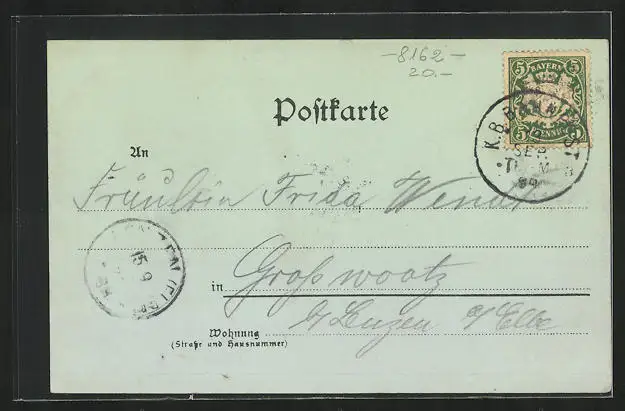 -8162-
20.-
5 BAYERN 5
5 PFENNIG 5
Postkarte
K.B. BAHNPOST
SEP
An
Fräulein Frida
15 9
in Grosswootz
b/ Lenzen a/Elbe
Wohnung
(Straße und Hausnummer)